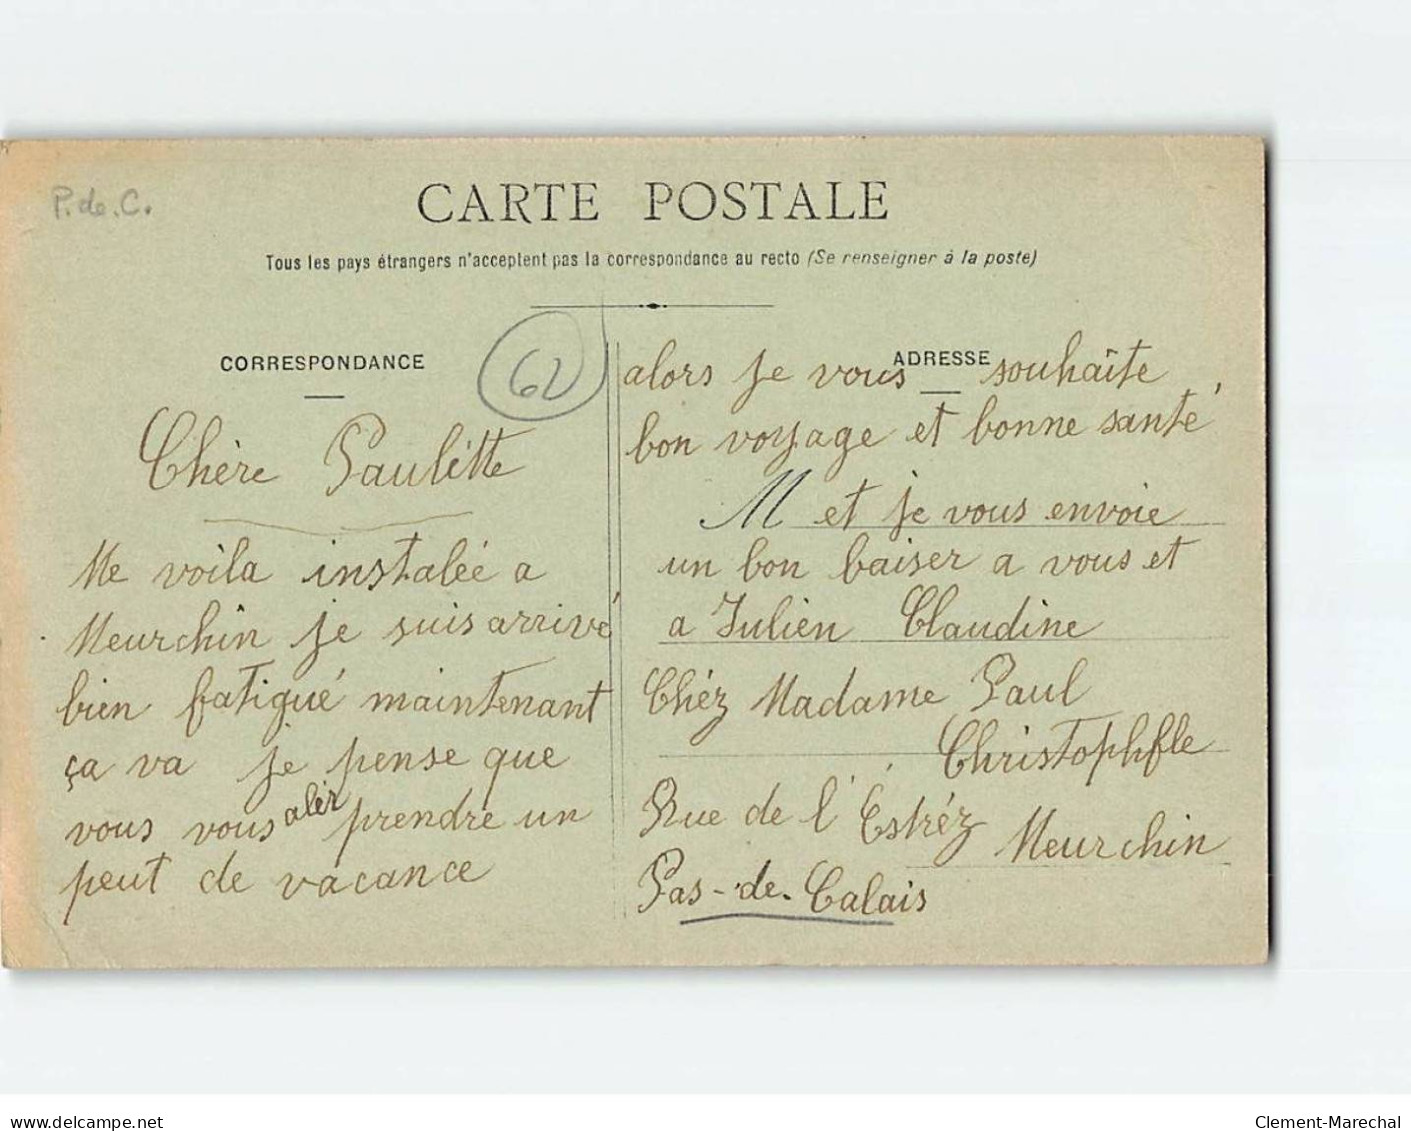 P.de.C.
CARTE POSTALE
Tous les pays étrangers n'acceptent pas la correspondance au recto (Se renseigner à la poste)
CORRESPONDANCE
62
Chère Paulètte
Me voila instalée a
Meurchin je suis arrivé
bien fatigué maintenant
ça va je pense que
vous vous alér prendre un
peut de vacance
ADRESSE
alors je vous souhaite
bon voyage et bonne santé
M et je vous envoie
un bon baiser a vous et
a Julien Claudine
Chéz Madame Paul
Christophfle
Rue de l'Estréz
Meurchin
Pas-de-Calais
www.delcampe.net
Clement-Marechal